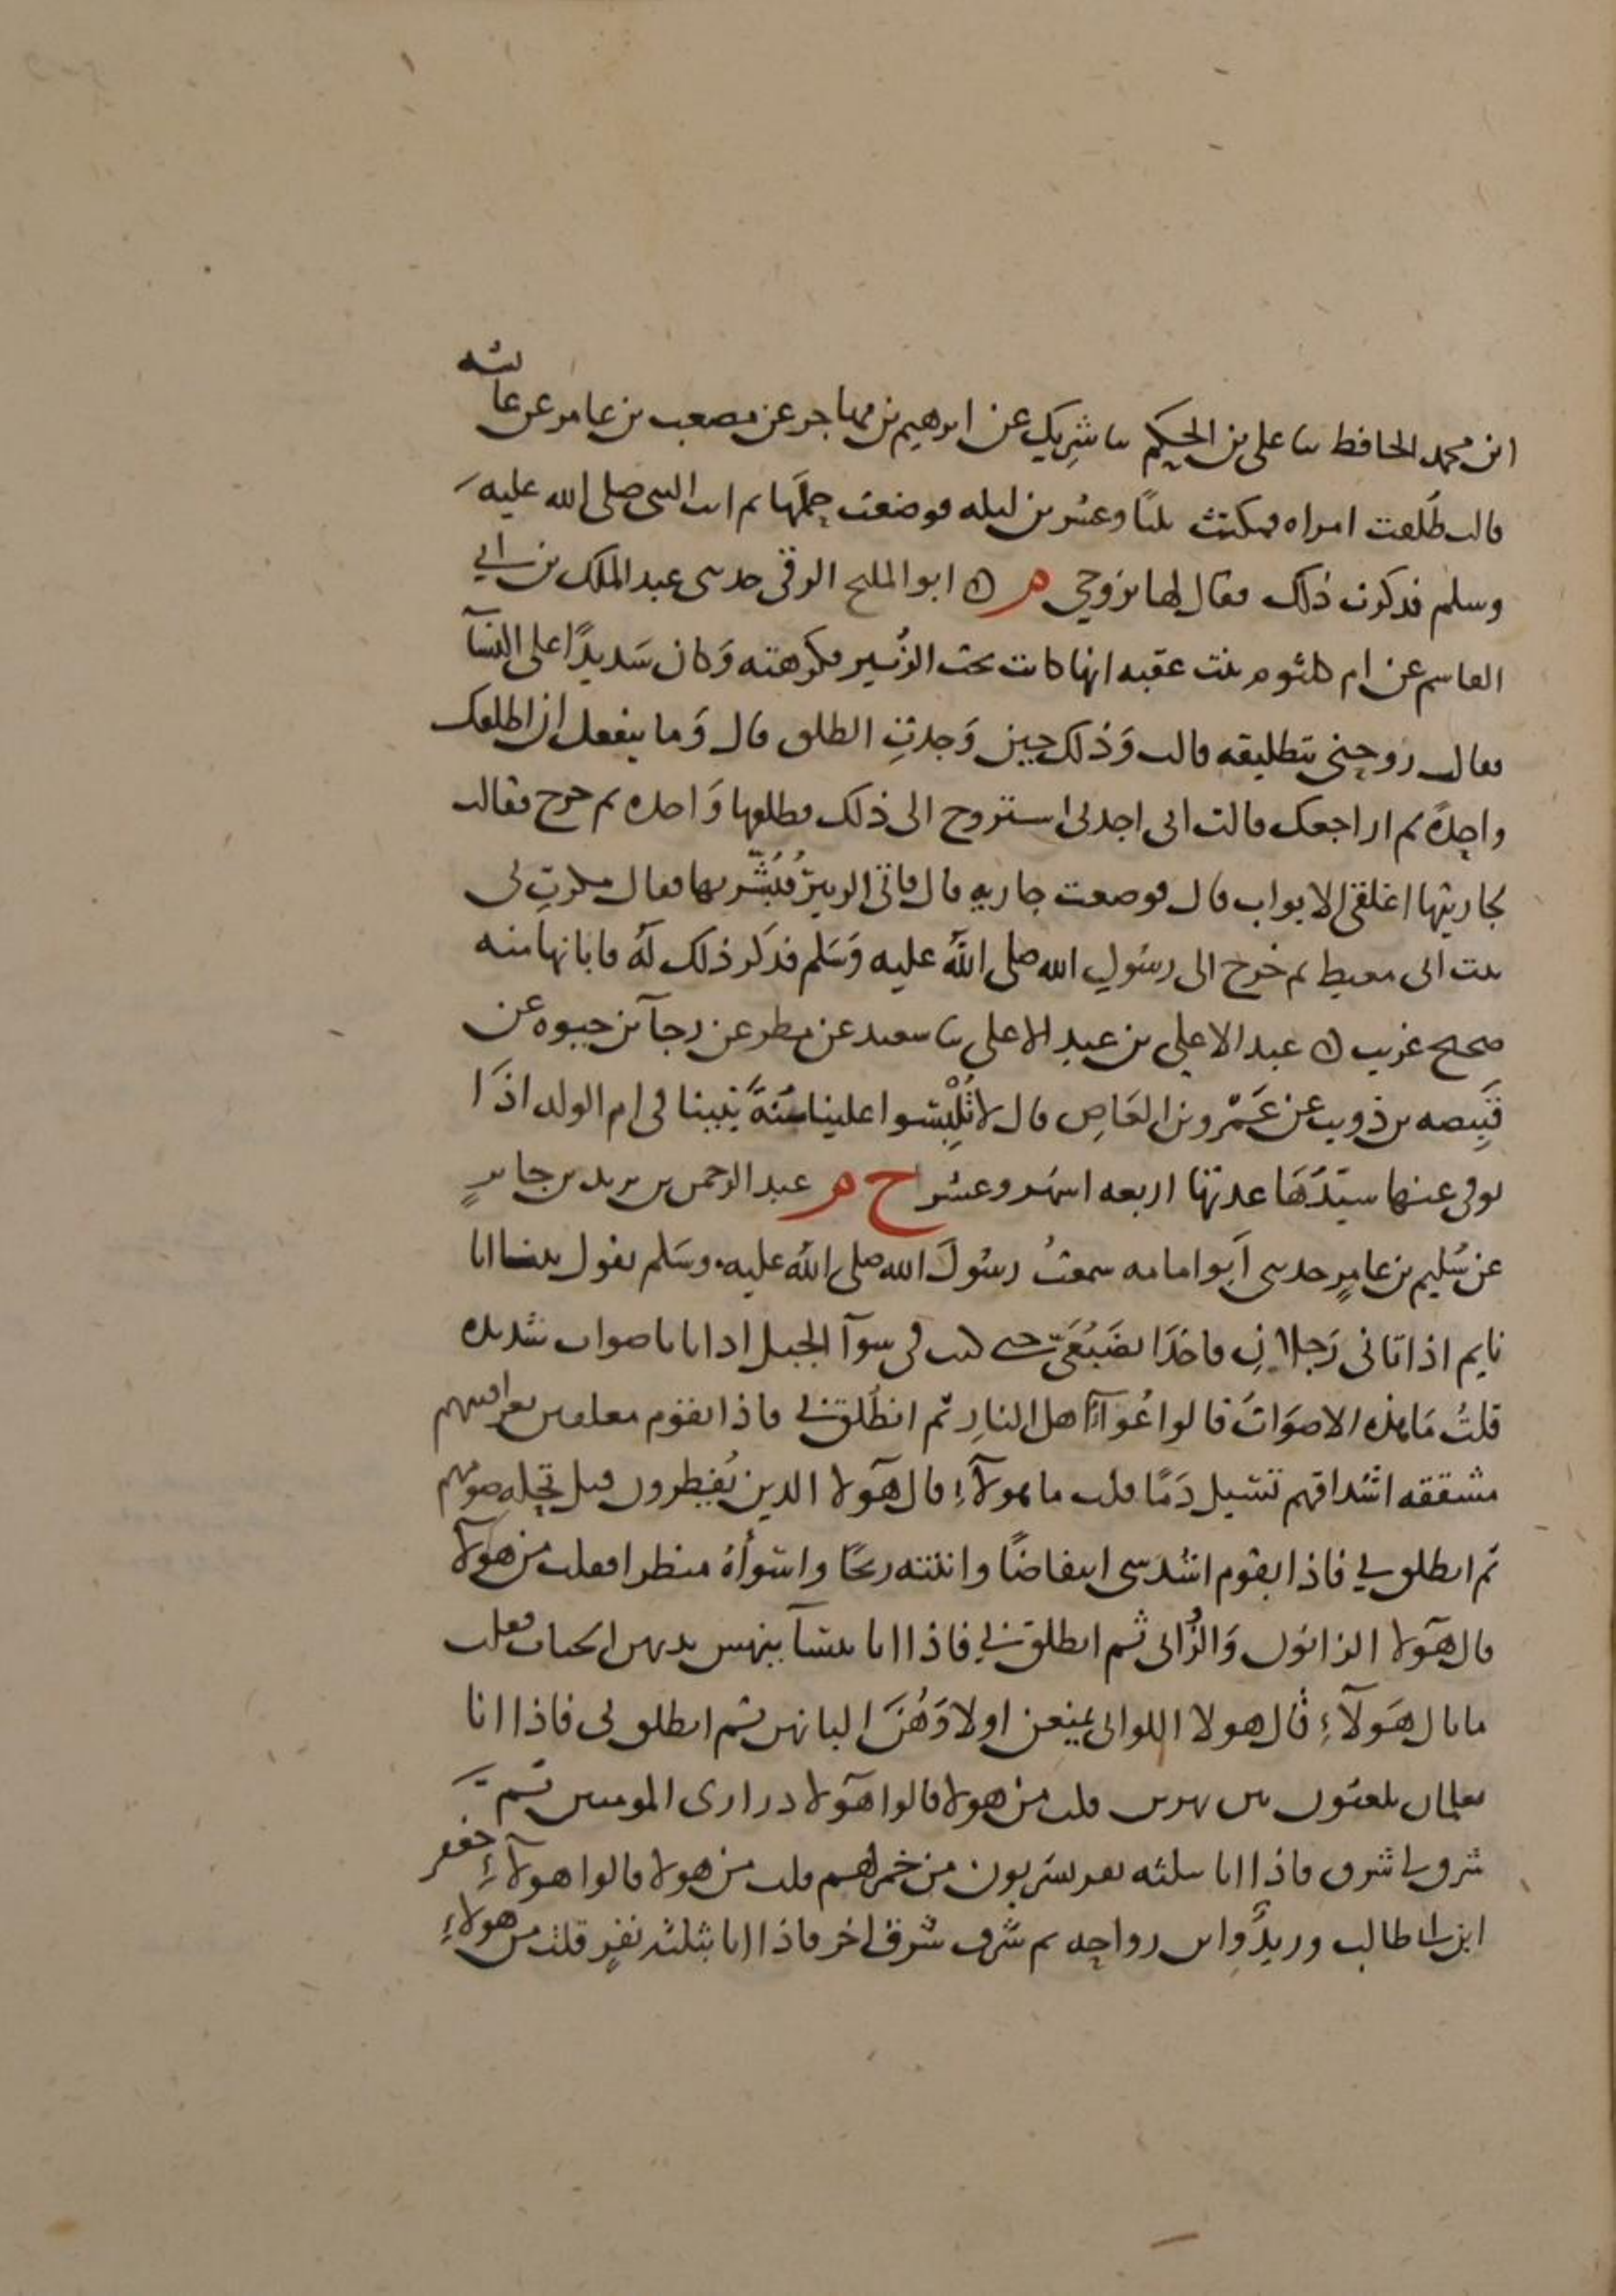 ابن محمد الحافظ ثنا علي بن الحكم ثنا شريك عن ابرهيم بن مهاجر عن مصعب بن عامر عن عائشه
قالت طلقت امراه فمكثت ثلثا وعشرين ليله فوضعت حملها ثم اتت النبي صلى الله عليه
وسلم فذكرت ذلك فقال لها تزوجي م ك ابو المليح الرقي حدثني عبد الملك بن ابي
القاسم عن ام كلثوم بنت عقبه انها كانت تحت الزُبير فكرهته وَكان شَديدًا على النسآ
فقال روحيني بتطليقه قالت وَذلك حين وَجدتِ الطلق قال وَما ينفعك ان اطلقك
واحِدةً ثم اراجعك قالت اني اجدني استروح الى ذلك فطلقها وَاحده ثم خرج فقالت
لجاريتها اغلقي الابواب قال فوضعت جاريه قال فاتي الزبيرُ فبُشّر بها فقال مكرت بي
بنت ابي معيط ثم خرج الى رسُولِ الله صلى اللهُ عليه وَسَلم فذكر ذلك لهُ فابانها منه
صحيح غريب ك عبد الاعلى بن عبد الاعلى ثنا سعيد عن مطر عن رجآ بن حيوه عن
قَبِيصه بن ذويب عن عَمْرو بن العَاصِ قال لا تُلْبِسُوا علينا سُنةَ نبينا في ام الولد اذَا
توفي عنها سيّدُهَا عدتها اربعه اشهر وعشر خ م عبد الرحمن بن يزيد بن جابرٍ
عن سُليم بن عامرٍ حدثني اَبو امامه سمعتُ رسُولَ الله صلى اللهُ عليه وسَلم يقول بينا انا
نايم اذ اتاني رَجلانِ فاخذَا بضَبُعَيّ حتى اتيا بي في سوآ الجبل اذا انا باصوات شديده
قلتُ مَا هذه الاصوَاتُ قالوا عُوَآءُ اهل النارِ ثم انطُلق بي فاذا بقوم معلقين بعراقيبهم
مشققه اشداقهم تسيل دَمًا قلت ما هولآءِ قال هَولا الذين يُفطِرون قبل تحِله صومهم
ثم انطلق بي فاذا بقوم اشد شي انتفاضًا وانتنه ريحًا واسوأهُ منظرا فقلت من هَولآ
قال هَولا الزانون وَالزُاني ثم انطلق بي فاذا انا بنسآ ينهس ثديهن الحيات فقلت
ما بال هَولآءِ قال هولا اللواتي يمنعن اولادَهُنَ البانهن ثم انطلق بي فاذا انا
بغلمان يلعبُون بين نهرين قلت من هولا قالوا هَولا دراري المومنين ثم
شرف بي شرف فاذا انا بثلثه نفر يشربون من خمر لهم قلت من هولا قالوا هولآءِ جعفر
ابن ابي طالب وزيدٌ وابن رواحه ثم شرف شرف اخر فاذا انا بثلثه نفرٍ قلت من هولاءِ